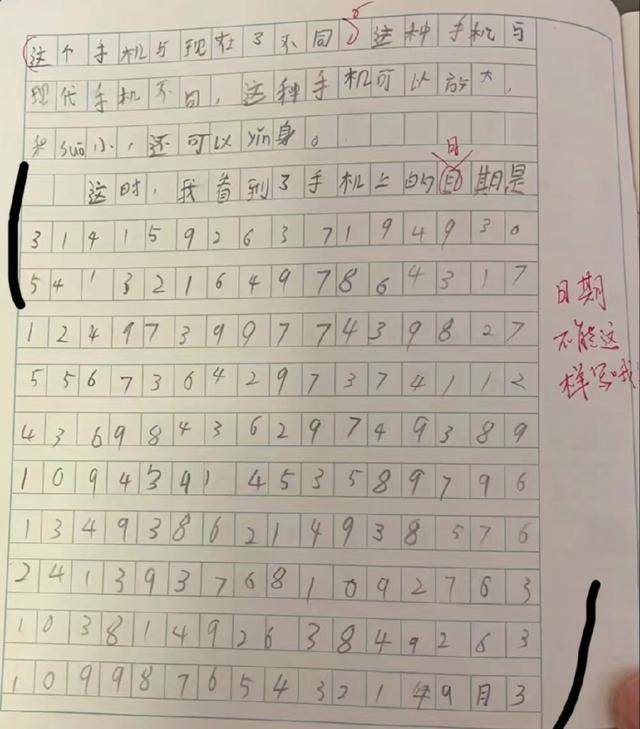 这个手机与现在了不同，这种手机与
现代手机不同，这种手机可以放大，
和suo小，还可以yin身。
日
这时，我看到了手机上的日期是
3141592637194930
5413216497864317
1249739977439827
5567364297374112
4369843629749389
1094391453589796
1349386214938576
2413937681092763
1038149263849263
109987654321年9月3
日期
不能这
样写哦